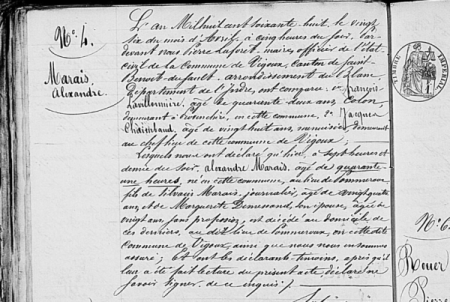 N°. 4.
Marais,
Alexandre.
L'an Mil huit cent soixante huit, le vingt
six du mois d'Avril, à cinq heures du soir, Par-
devant nous Pierre Laforet, maire, officier de l'état
civil de la Commune de Vigoux, Canton de Saint
Benoit du Sault, arrondissement du Blanc,
Département de l'Indre, ont comparu, 1° François
âgé de quarante deux ans, Colon,
demeurant à en cette commune, 2° Jacques
Chaimbaud, âgé de vingt huit ans, demeurant
au chef lieu de cette commune de Vigoux;
Lesquels nous ont déclaré qu'hier, à sept heures et
demie du soir, Alexandre Marais, âgé de quarante
une heures, né en cette commune, au lieu de
fils de Silvain Marais, journalier, âgé de vingt quatre
ans, et de Marguerite son épouse, âgée de
vingt ans, sans profession, est décédé au domicile de
ces derniers, au dit lieu de en cette dite
Commune de Vigoux, ainsi que nous nous en sommes
assuré; Et ont les déclarants témoins, après qu'il
leur a été fait lecture du présent acte, déclaré ne
savoir signer, de ce enquis.
TIMBRE IMPÉRIAL
N°. 6.
Rouer
Pierre